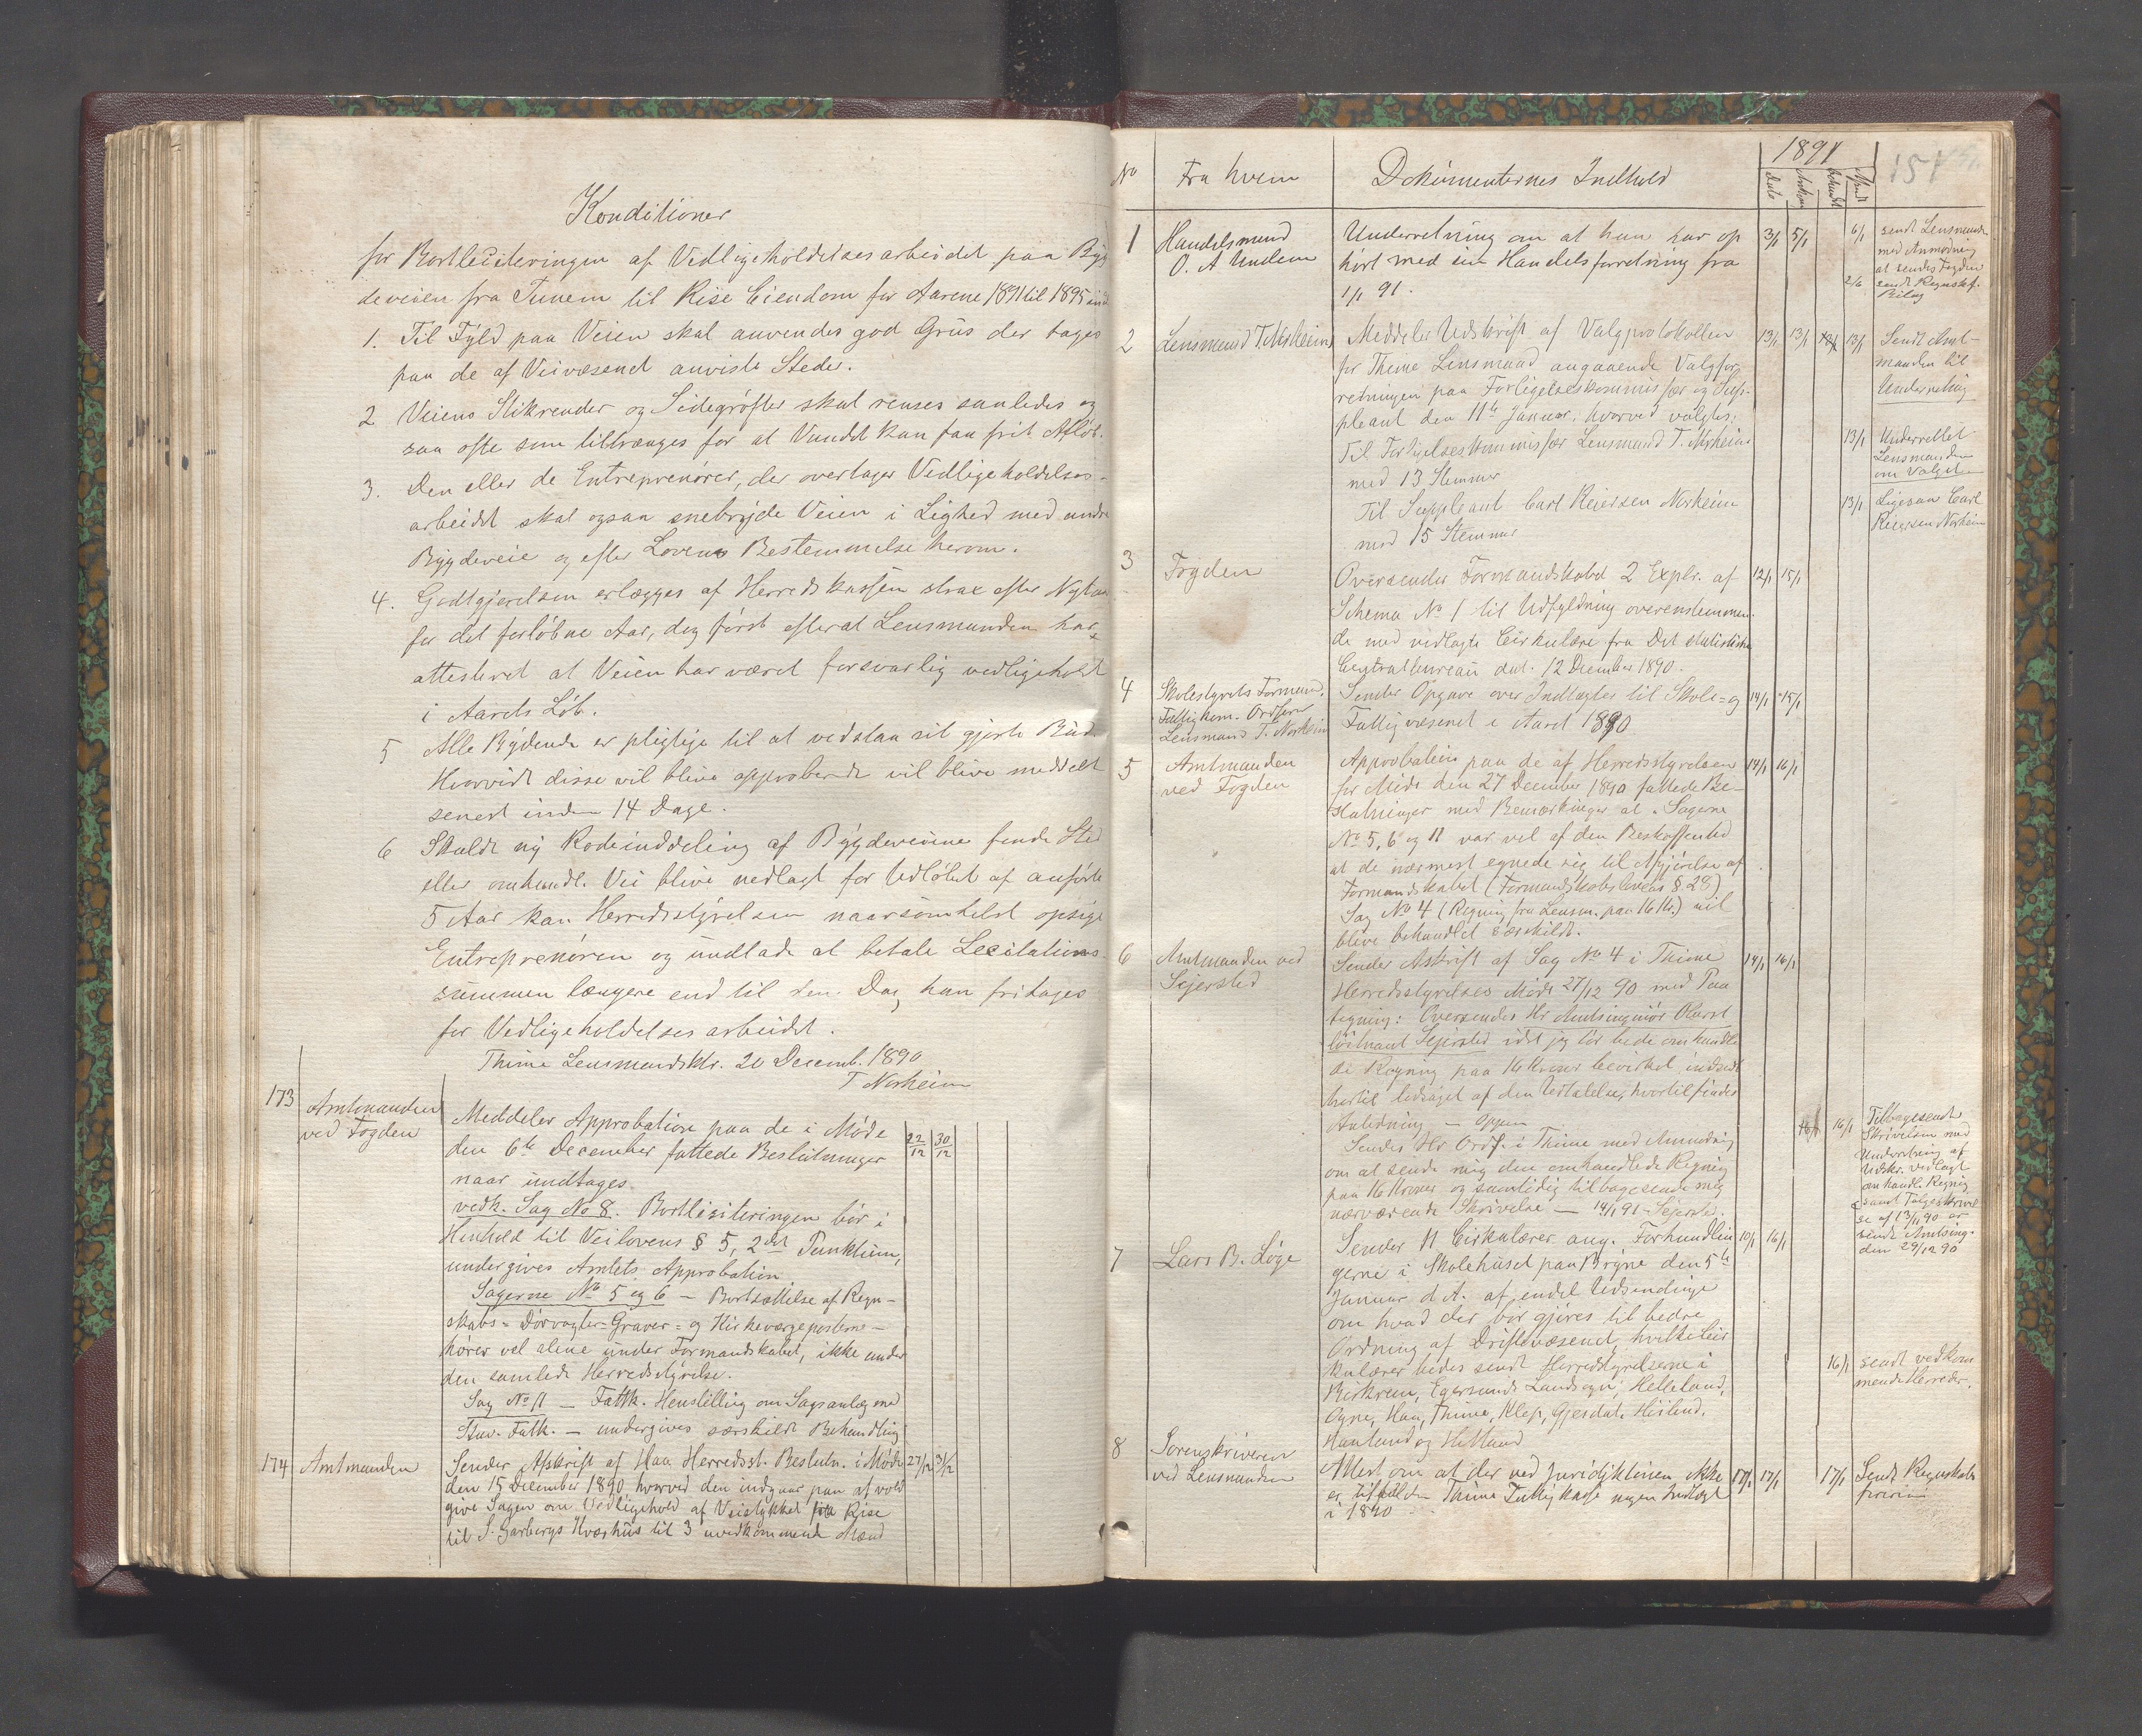 Konditioner
for Bortleciteringen af Vedligeholdelsesarbeidet paa Byg
deveien fra Tunem til Rise Eiendom for Aarene 1891 til 1895 incl
1. Til Fyld paa Veien skal anvendes god Grus der tages
paa de af Veivæsenet anviste Steder.
2 Veiens Stikrender og Sidegrøfter skal renses saaledes og
saa ofte som tiltrænges for at Vandet kan faa frit Afløb.
3. Den eller de Entreprenører, der overtager Vedligeholdelses-
arbeidet skal ogsaa snebrøide Veien i Lighed med andre
Bygdeveie og efter Lovens Bestemmelse herom.
4. Godtgjørelsen erlægges af Herredskassen strax efter Nytaar
for det forløbne Aar, dog først efterat Lensmanden har
attesteret at Veien har været forsvarlig vedligeholdt
i Aarets Løb.
5 Alle Bydende er pligtige til at vedstaa sit gjorte Bud.
Hvorvidt disse vil blive approberede vil blive meddelt
senest inden 14 Dage.
6 Skulde ny Rodeinddeling af Bygdeveiene finde Sted
eller omhandl. Vei blive nedlagt før Udløbet af anførte
5 Aar kan Herredsstyrelsen naarsomhelst opsige
Entreprenøren og undlade at betale Lecitations
summen længere end til den Dag han fritages
for Vedligeholdelsesarbeidet.
Thime Lensmandsktr. 20 Decemb. 1890
T Norheim
173 Amtmanden
ved Fogden
Meddeler Approbation paa de i Møde 22/12 30/12
den 6te December fattede Beslutninger
naar undtages
vedk. Sag No 8. Bortlisiteringen bør i
Henhold til Veilovens § 5, 2det Punktum,
undergives Amtets Approbation
Sagerne No 5 og 6 – Bortsættelse af Regn-
skabs= Dørvogter= Graver= og Kirkeværgeposterne –
hører vel alene under Formandskabet, ikke under
den samlede Herredsstyrelse.
Sag No 11 – Fattk. Henstilling om Sagsanlæg med
Stav. Fattk. – undergives særskildt Behandling
174 Amtmanden Sender Afskrift af Haa Herredsst. Beslutn. i Møde 27/12 31/12
den 15 December 1890 hvorved den indgaar paa at vold
give Sagen om Vedligehold af Veistykket fra Rise
til S. Garbergs Kvæhus til 3 uvedkommende Mænd
1891
No Fra hvem Dokumenternes Indhold Dato
1 Handelsmand
O. A Undem
Underretning om at han har op 3/1 5/1
hørt med sin Handelsforretning fra
1/1 91.
6/1 sendt Lensmanden
med Anmodning
at sendes Fogden
2/6 sendt Regnskf.
Bilag
2 Lensmand T. Norheim Meddeler Udskrift af Valgprotokollen 13/1 13/1 13/1
for Thime Lensmand angaaende Valgfor
retningen paa Forligelseskommissær og Sup-
pleant den 11te Januar, hvorved valgtes:
Til Forligelseskommissær Lensmand T. Norheim
med 13 Stemmer
Til Suppleant Carl Reiersen Norheim
med 15 Stemmer
Sendt Amt-
manden til
Underretning
13/1 Underrettet
Lensmanden
om Valget
13/1 Ligesaa Carl
Reiersen Norheim
3 Fogden Oversender Formandskabet 2 Explr. af 12/1 15/1
Schema No 1 til Udfyldning overenstemmen
de med vedlagte Cirkulære fra Det statistiske
Centralbureau dat. 12 December 1890.
4 Skolestyrets Formand,
Fattigkom. Ordfører
Lensmand T. Norheim
Sender Opgave over Indtægter til Skole= og 14/1 15/1
Fattigvæsenet i Aaret 1890
5 Amtmanden
ved Fogden
Approbation paa de af Herredsstyrelsen 14/1 16/1
for Møde den 27 December 1890 fattede Be-
slutninger med Bemærkninger at „Sagerne
No 5, 6 og 11 var vel af den Beskaffenhed
at de nærmest egnede sig til Afgjørelse af
Formandskabet (Formandskabslovens § 28)
Sag No 4 (Regning fra Lensm. paa 16 Kr.) vil
blive behandlet særskildt.
6 Amtmanden ved
Sejersted
Sender Afskrift af Sag No 4 i Thime 14/1 16/1
Herredsstyrelses Møde 27/12 90 med Paa
tegning: Oversendes Hr Amtsingeniør Overst
løitnant Sejersted idet jeg tør bede omhandle
de Regning paa 16 Kroner bevirket indsendt
hertil ledsaget af den Udtalelse, hvortil findes
Anledning –
Sendes Hr Ordf. i Thime med Anmodning
om at sende mig den omhandlede Regning
paa 16 Kroner og samtidig tilbagesende mig
nærværende Skrivelse – 14/1 91 – Sejersted.
16/1 Tilbagesendt
Skrivelsen med
Underretning af
Udskr. vedlagt
omhandl. Regning
samt Følgeskrivel
se af 13/11 90 er
sendt Amtsing.
den 29/12 90
7 Lars B. Løge Sender 11 Cirkulærer ang. Forhandlin 10/1 16/1
gerne i Skolehuset paa Bryne den 5te
Januar d A. af endel Udsendinge
om hvad der bør gjøres til bedre
Ordning af Driftevæsenet, hvilke Cir
kulærer bedes sendt Herredsstyrelserne i
Birkrem, Egersunds Landsogn, Helleland,
Ogne, Haa, Thime, Klep, Gjesdal, Høiland,
Haaland og Hetland
16/1 sendt vedkom
mende Herreder.
8 Sorenskriveren
ved Lensmanden
Attest om at der ved Juridiktionen ikke 17/1 17/1
er tilfalden Thime Fattigkasse nogen Indtægt
i 1890
17/1 Sendt Regnskabs
føreren